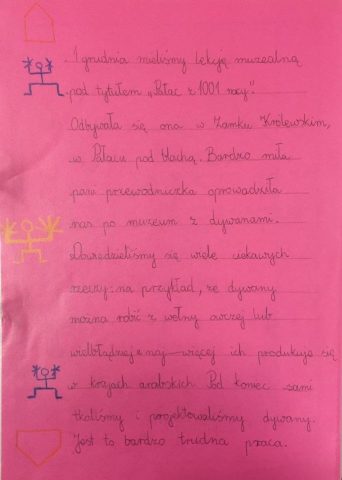 1 grudnia mieliśmy lekcję muzealną
pod tytułem „Pałac z 1001 nocy".
Odbywała się ona w Zamku Królewskim,
w Pałacu pod blachą. Bardzo miła
pani przewodniczka oprowadziła
nas po muzeum z dywanami.
Dowiedzieliśmy się wiele ciekawych
rzeczy: na przykład, że dywany
można robić z wełny owczej lub
wielbłądziej a naj-więcej ich produkuje się
w krajach arabskich Pod koniec sami
tkaliśmy i projektowaliśmy dywany.
Jest to bardzo trudna praca.